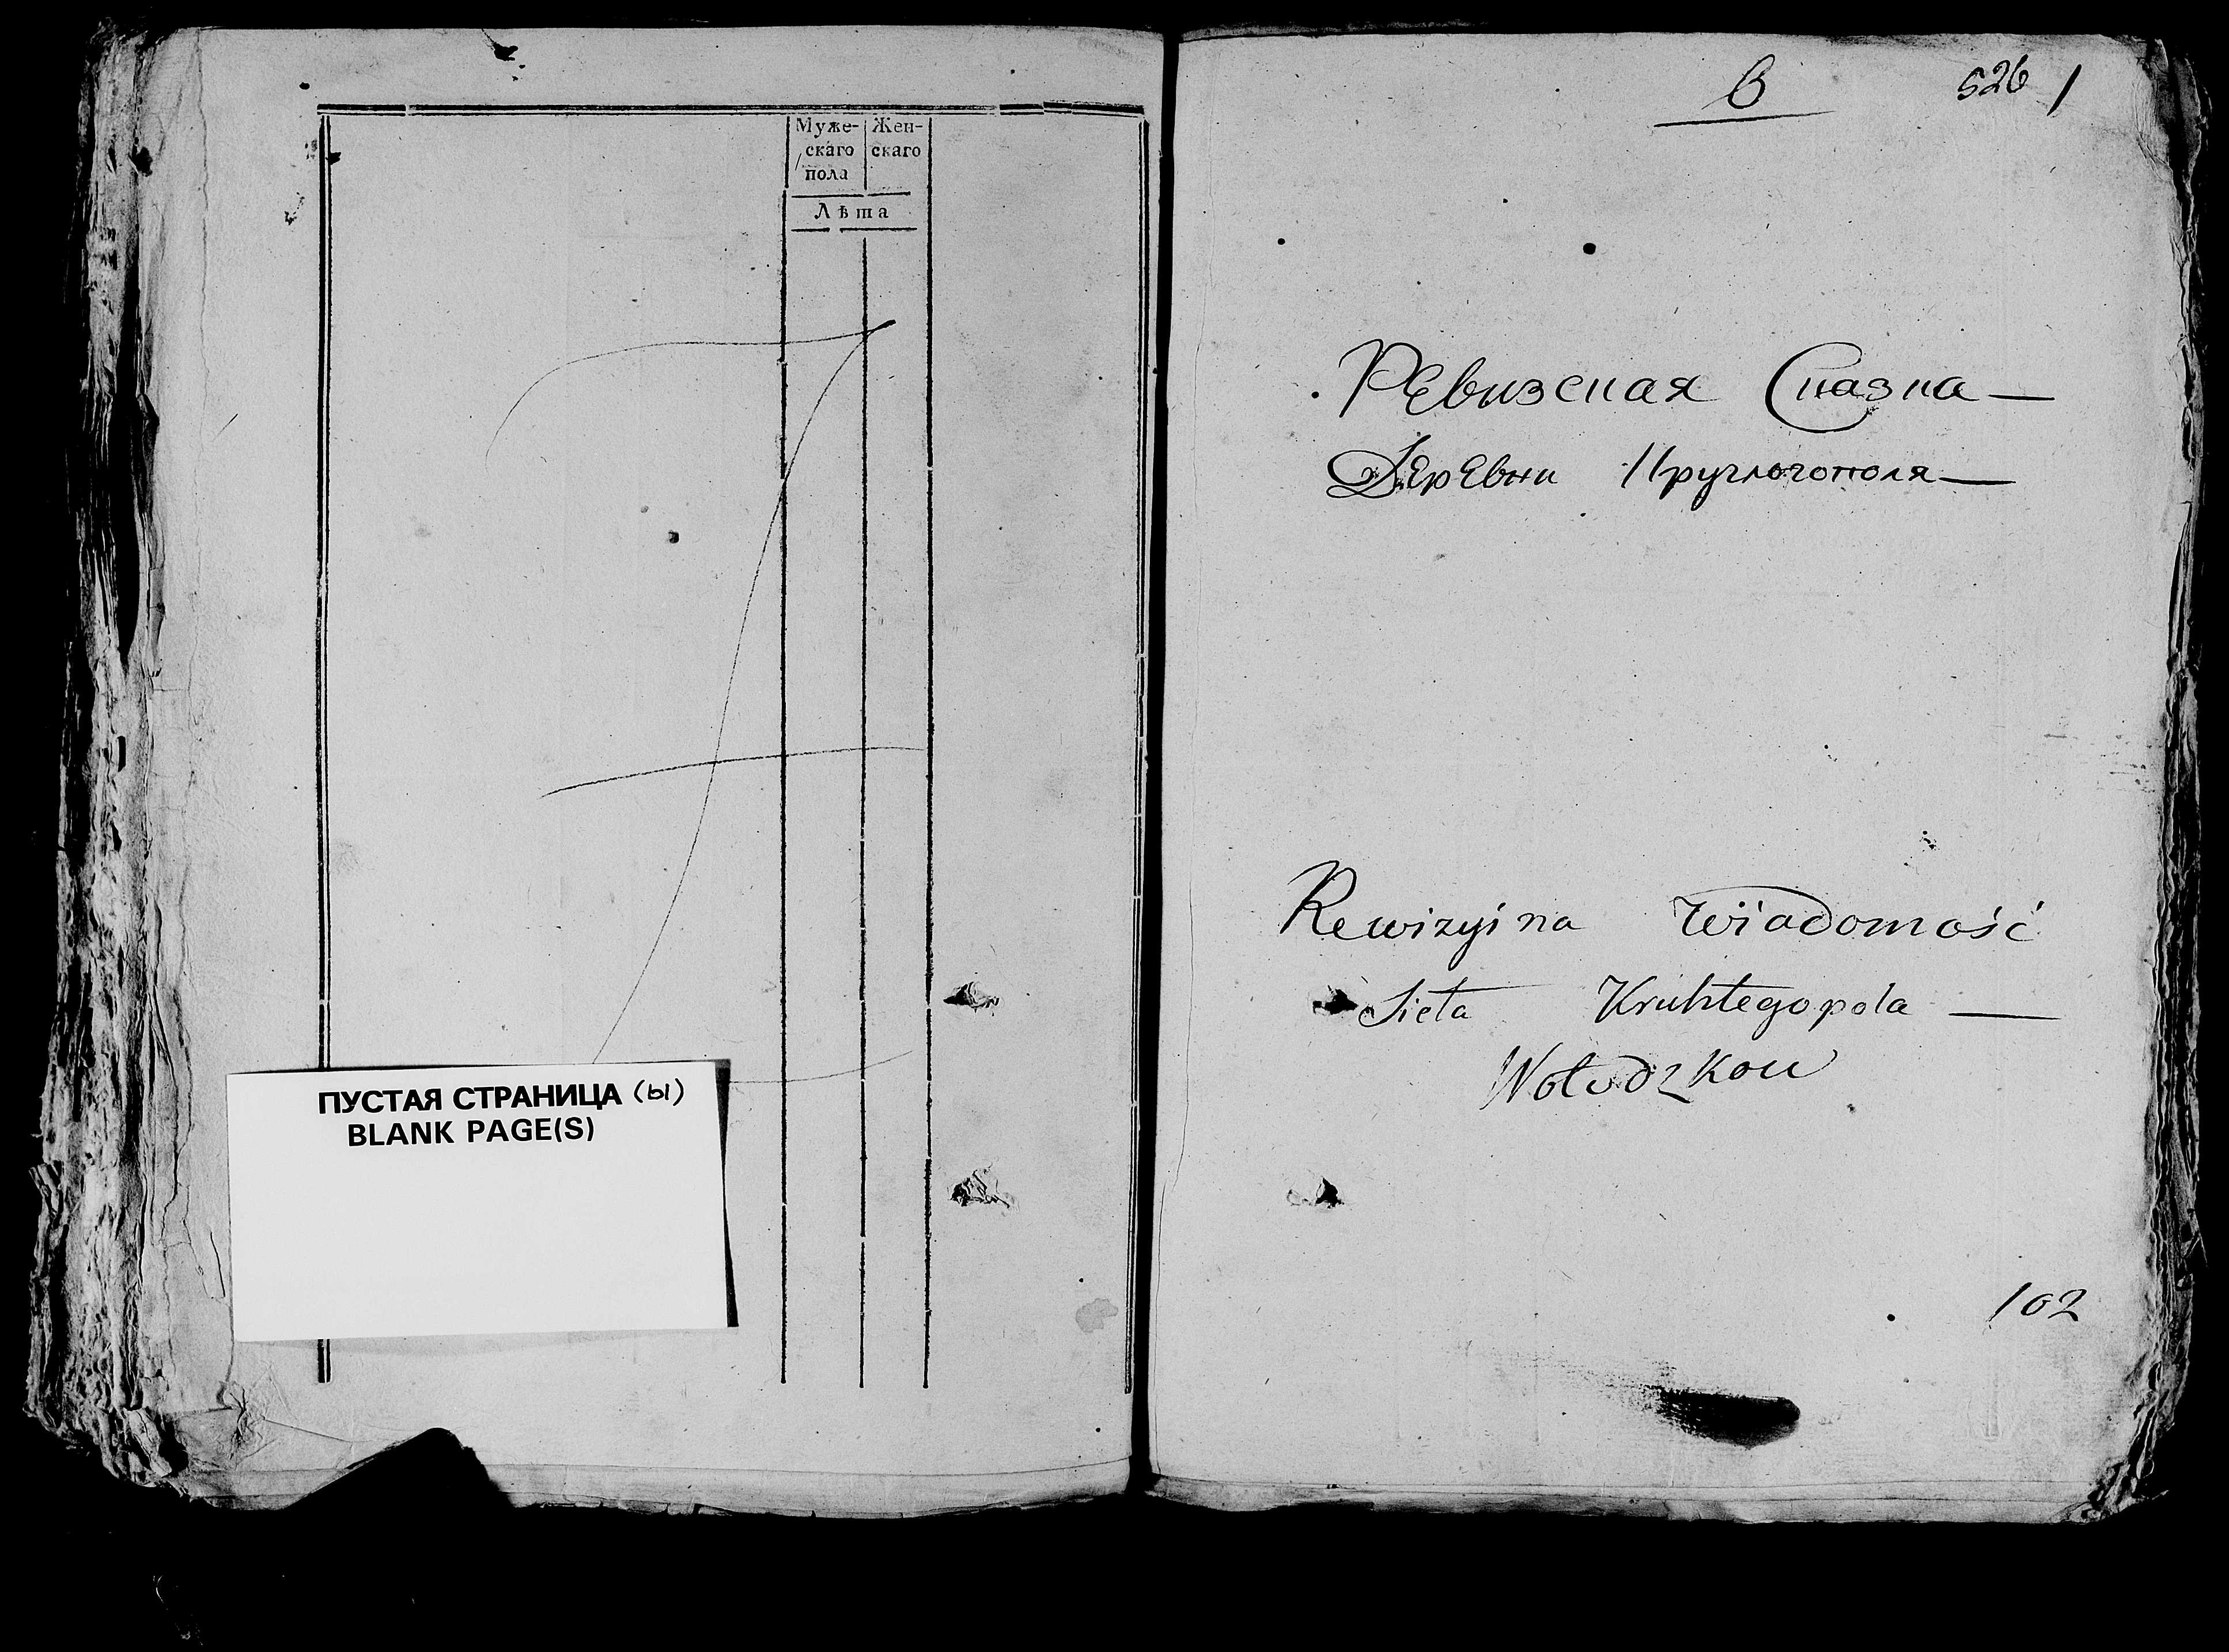 Муже-
скаго
пола
Жен-
скаго
Лѣта
ПУСТАЯ СТРАНИЦА (ы)
BLANK PAGE(S)
6
526 1
Ревизская Сказка —
Деревни Круглогополя —
Rewizyina wiadomość
Siela Kruhłegopola —
102